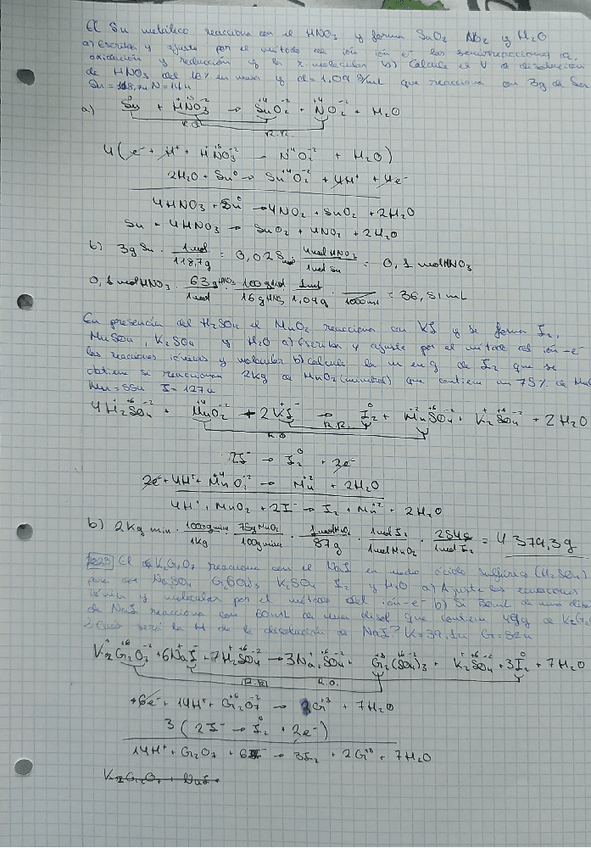 El Sn metálico reacciona con el HNO3 y forma SnO2 NO2 y H2O
a) Escribe y ajusta por el método de ión ión e- las semirreacciones de
oxidación y reducción y la r. molecular b) Calcula el V de disolución
de HNO3 del 16% en masa y d=1,09 g/mL que reacciona con 3g de Sn
Sn = 118,7u N=14u
a) Sn + HNO3 → SnO2 + NO2 + H2O
4(e- + H+ + HNO3 → NO2 + H2O)
2H2O + Sn → SnO2 + 4H+ + 4e-
4HNO3 + Sn → 4NO2 + SnO2 + 2H2O
Sn + 4HNO3 → SnO2 + 4NO2 + 2H2O
b) 3g Sn · 1mol / 118,7g = 0,025 · 4mol HNO3 / 1mol Sn = 0,1 mol HNO3
0,1 mol HNO3 · 63g HNO3 / 1mol · 100g / 16g HNO3 · 1mL / 1,09g · / 1000ml = 36,81 mL
En presencia del H2SO4 el MnO2 reacciona con KI y se forma I2,
MnSO4, K2SO4 y H2O a) Escribe y ajusta por el método del ión-e-
las reacciones iónicas y molecular b) calcula la m en g de I2 que se
obtiene si reaccionan 2kg de MnO2 que contiene un 75% de
Mn=55u I=127u
H2SO4 + MnO2 + 2KI → I2 + MnSO4 + K2SO4 + 2H2O
2I- → I2 + 2e-
2e- + 4H+ + MnO2 → Mn + 2H2O
4H+ + MnO2 + 2I- → I2 + Mn+2 + 2H2O
b) 2Kg min · 1000g min / 1Kg · 75g MnO2 / 100g min · 1molMnO2 / 87g · 1mol I2 / 1molMnO2 · 254g / 1mol I2 = 4379,3g
El K2Cr2O7 reacciona con el NaI en medio ácido sulfúrico (H2SO4)
Na2SO4 Cr2(SO4)3 K2SO4 I2 y H2O a) Ajusta las ecuaciones
iónica y molecular por el método del ión-e- b) Si
de NaI reacciona con 60mL de una disol que contiene 49g de K2Cr2O7
la M de la disolución de NaI? K=39,1u Cr=52u
K2Cr2O7 + 6NaI + 7H2SO4 → 3Na2SO4 + Cr2(SO4)3 + K2SO4 + 3I2 + 7H2O
+6e- + 14H+ + Cr2O7 → 2Cr+3 + 7H2O
3(2I- → I2 + 2e-)
14H+ + Cr2O7 + 6I- → 3I2 + 2Cr+3 + 7H2O
K2Cr2O7 + NaI +